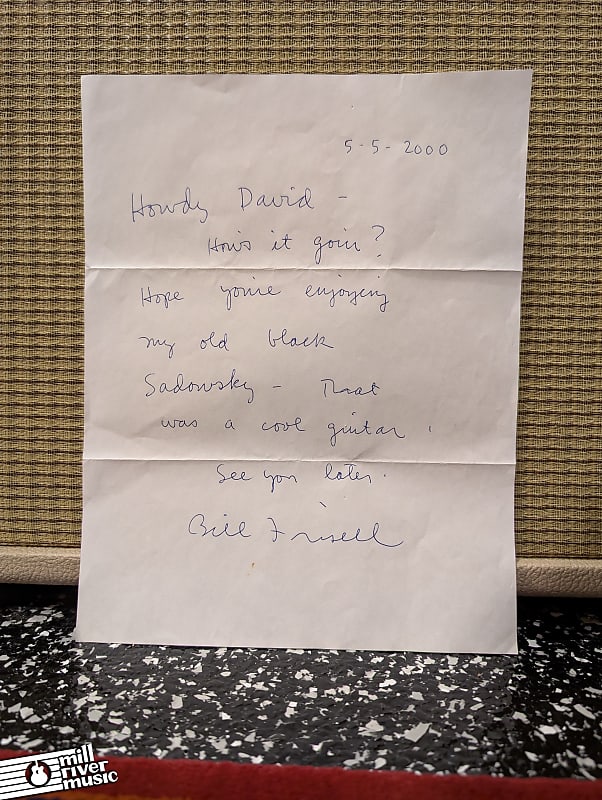 5-5-2000
Howdy David -
How's it goin?
Hope you're enjoying
my old black
Sadowsky - That
was a cool guitar.
See you later.
Bill Frisell
mill
river
music